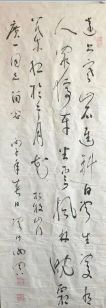 遠上寒山石徑斜白雲生處有
人家停車坐愛楓林晚
霜葉紅於二月花 杜牧山行
一同志 年春日